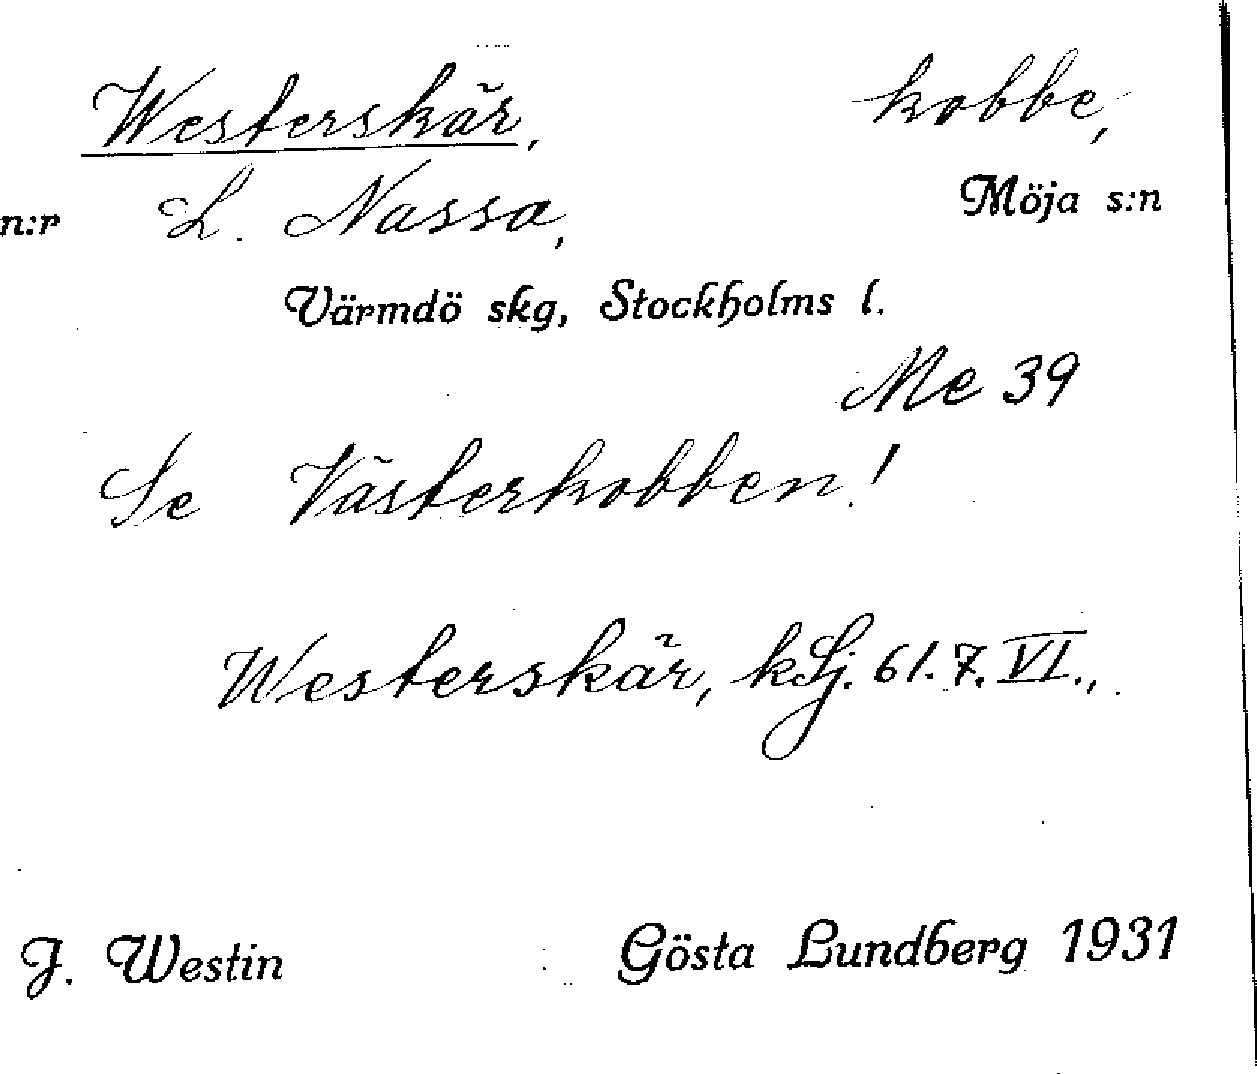 Westerskär, kobbe,
n:r L. Nassa, Möja s:n
Värmdö skg, Stockholms l.
Me 39
Se Västerkobben!
Westerskär, k Lj. 61.7.VI.,
J. Westin Gösta Lundberg 1931